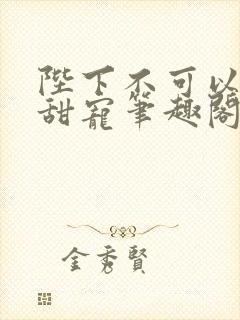 陛下不可以
甜寵筆趣閣
金秀賢